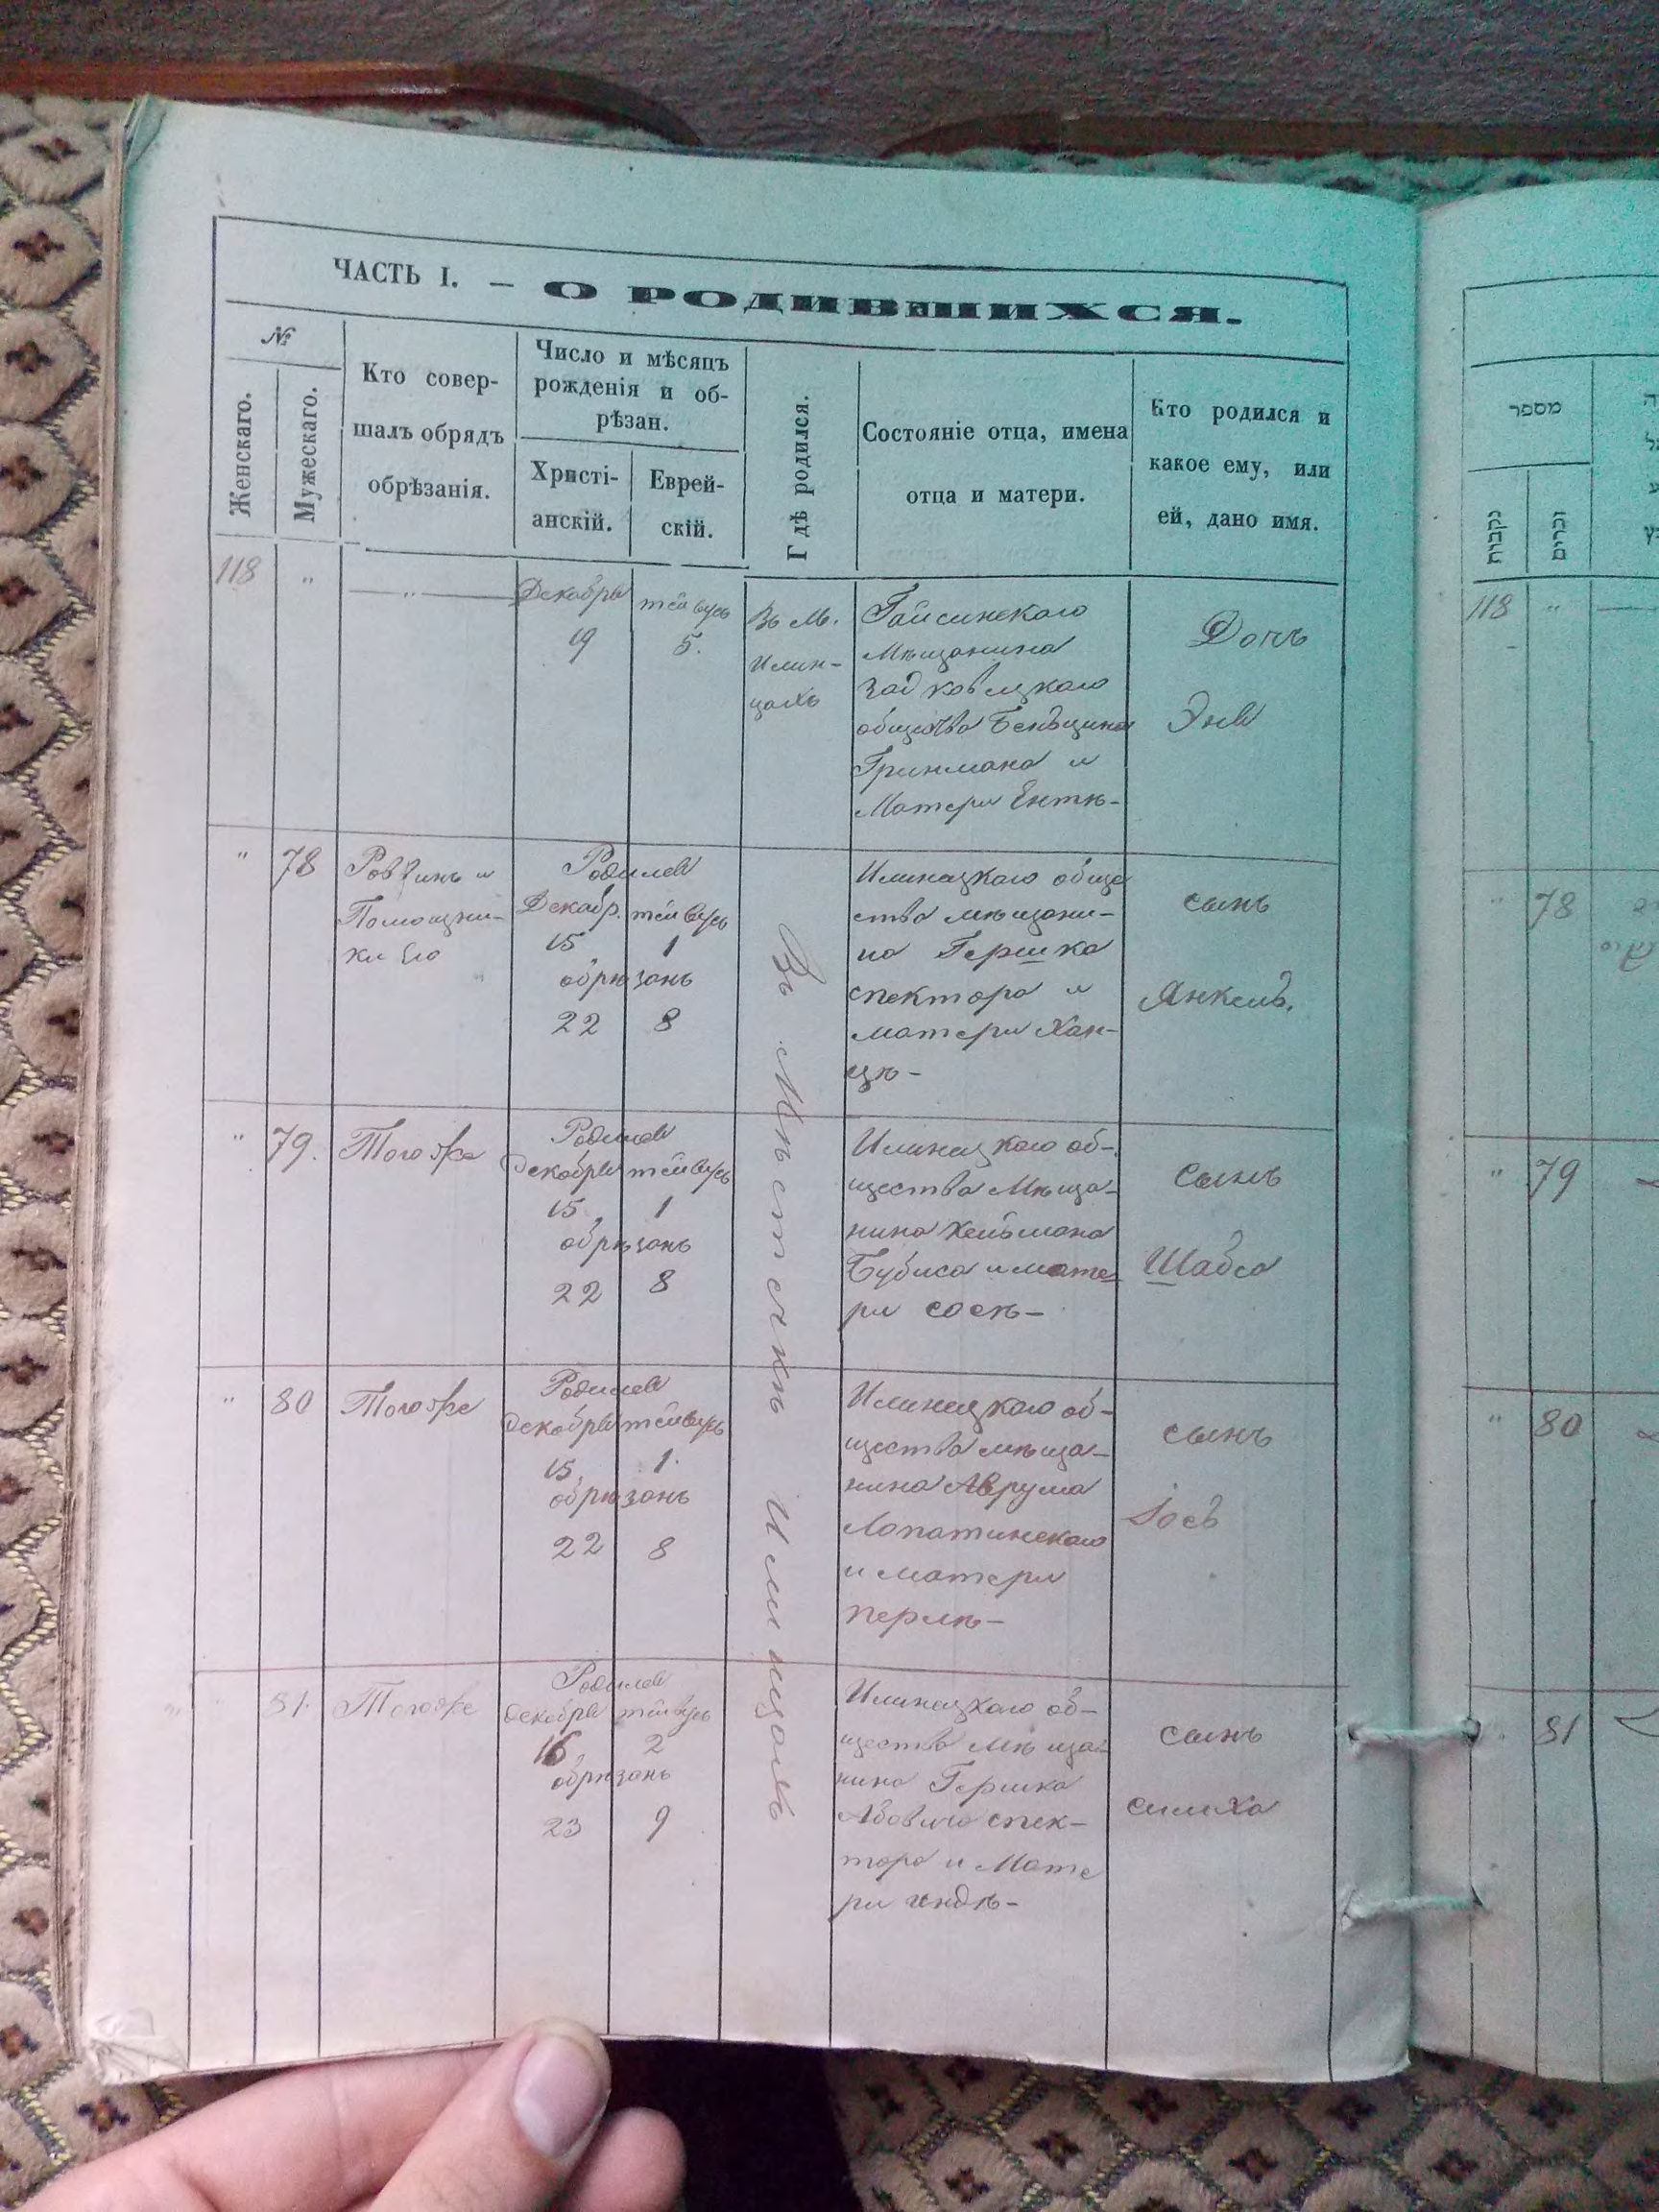 ЧАСТЬ I. — О РОДИВШИХСЯ.
№
Женскаго.
Мужескаго.
Кто совер-
шалъ обрядъ
обрѣзанія.
Число и мѣсяцъ
рожденія и об-
рѣзан.
Христі-
анскій.
Еврей-
скій.
Гдѣ родился.
Состояніе отца, имена
отца и матери.
Кто родился и
какое ему, или
ей, дано имя.
118
"
— " —
Декабря
19
тейвусъ
5.
Въ м.
Илин-
цахъ
Гайсинскаго
Мѣщанина
общества
Гринмана и
Матери Ентѣ-
Дочь
Эня
"
78
Раввинъ и
Помощни-
ки Его
Родился
Декабр. тейвусъ
15 1
обрѣзанъ
22 8
Въ Мѣстечкѣ Илинцахъ
Илинецкаго обще
ства мѣщани-
на Гершка
спектора и
матери Хан-
цѣ-
сынъ
Янкель.
"
79.
Тогоже
Родился
декабря тейвусъ
15 1
обрѣзанъ
22 8
Илинецкаго об-
щества Мѣща-
нина Хеймана
Бубиса и мате-
ри соси-
сынъ
Шабса
"
80
Тогоже
Родился
декабря тейвусъ
15 1.
обрѣзанъ
22 8
Илинецкаго об-
щества мѣща-
нина Аврума
Лопатинскаго
и матери
перлѣ-
сынъ
Іось
"
81.
Тогоже
Родился
декабря тейвусъ
16 2
обрѣзанъ
23 9
Илинецкаго об-
щества мѣща-
нина Гершка
спек-
тора и Мате
ри
сынъ
симха
מספר
נקבות
זכרים
118
"
"
78
"
79
"
80
81